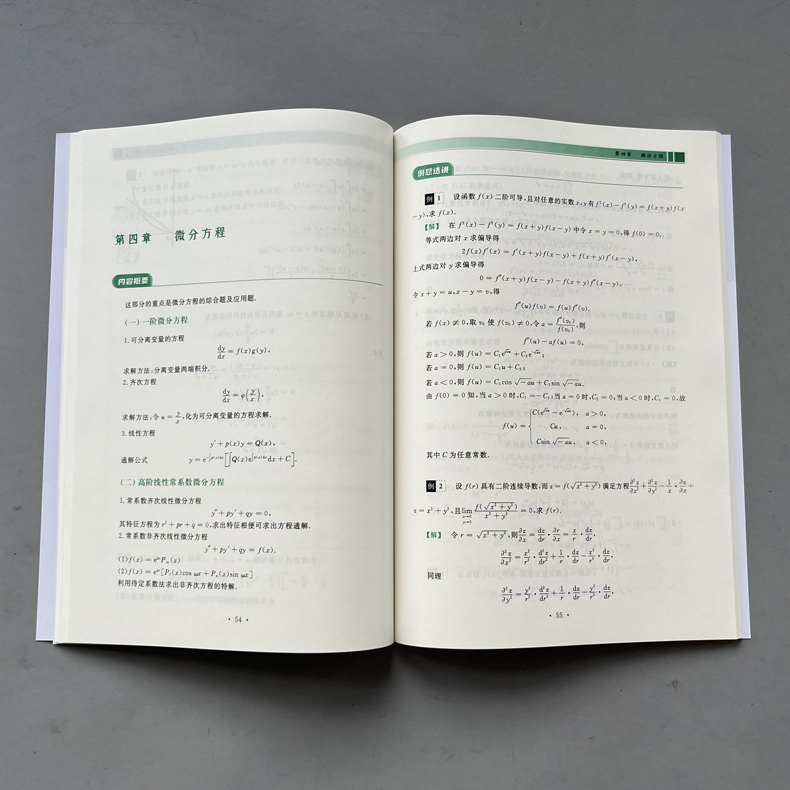 第四章 微分方程
内容概要
这部分的重点是微分方程的综合题及应用题.
(一) 一阶微分方程
1. 可分离变量的方程
dy/dx = f(x)g(y),
求解方法:分离变量两端积分.
2. 齐次方程
dy/dx = φ(y/x),
求解方法:令 u = y/x,化为可分离变量的方程求解.
3. 线性方程
y′ + p(x)y = Q(x),
通解公式 y = e^{-∫p(x)dx}[∫Q(x)e^{∫p(x)dx}dx + C].
(二) 高阶线性常系数微分方程
1. 常系数齐次线性微分方程
y″ + py′ + qy = 0,
其特征方程为 r² + pr + q = 0,求出特征根便可求出方程通解.
2. 常系数非齐次线性微分方程
y″ + py′ + qy = f(x).
(1) f(x) = e^{αx}Pₙ(x)
(2) f(x) = e^{αx}[Pₗ(x)cos ωx + Pₙ(x)sin ωx]
利用待定系数法求出非齐次方程的特解.
· 54 ·
第四章 微分方程
例题选讲
例 1 设函数 f(x) 二阶可导,且对任意的实数 x,y 有 f²(x) − f²(y) = f(x+y)f(x
−y),求 f(x).
【解】 在 f²(x) − f²(y) = f(x+y)f(x−y) 中令 x = y = 0,得 f(0) = 0,
等式两边对 x 求偏导得
2f(x)f′(x) = f′(x+y)f(x−y) + f(x+y)f′(x−y),
上式两边对 y 求偏导得
0 = f″(x+y)f(x−y) − f(x+y)f″(x−y),
令 x+y = u,x−y = v,得
f″(u)f(v) = f(u)f″(v),
若 f(x) ≢ 0,取 v₀ 使 f(v₀) ≠ 0,令 a = f″(v₀)/f(v₀),则
f″(u) − af(u) = 0,
若 a > 0,则 f(u) = C₁e^{√a u} + C₂e^{-√a u};
若 a = 0,则 f(u) = C₁u + C₂;
若 a < 0,则 f(u) = C₁cos √−a u + C₂sin √−a u.
由 f(0) = 0 知,当 a > 0 时,C₁ = −C₂;当 a = 0 时,C₂ = 0;当 a < 0 时,C₁ = 0,故
C(e^{√a u} − e^{-√a u}), a > 0,
f(u) = { Cu, a = 0,
Csin √−a u, a < 0,
其中 C 为任意常数.
例 2 设 f(r) 具有二阶连续导数,而 z = f(√(x² + y²)) 满足方程 ∂²z/∂x² + ∂²z/∂y² − 1/x · ∂z/∂x +
z = x² + y²,且 lim_{x→0 y→0} f(√(x² + y²))/(x² + y²) = 0,求 f(r).
【解】 令 r = √(x² + y²),则 ∂z/∂x = dz/dr · ∂r/∂x = x/r · dz/dr,
∂²z/∂x² = x²/r² · d²z/dr² + 1/r · dz/dr − x²/r³ · dz/dr,
同理
∂²z/∂y² = y²/r² · d²z/dr² + 1/r · dz/dr − y²/r³ · dz/dr,
· 55 ·